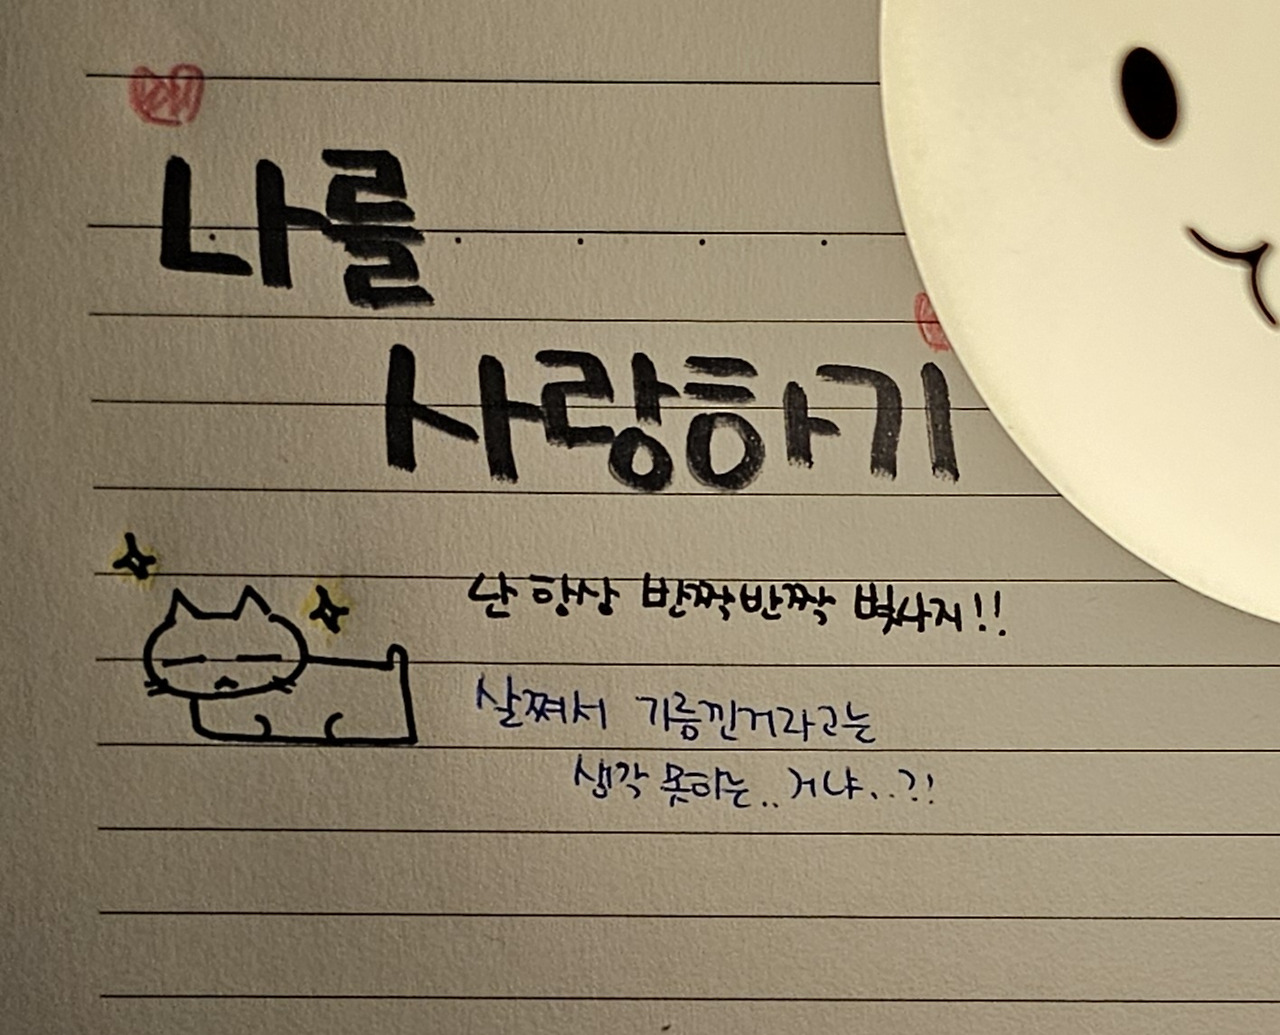 나를
사랑하기
난 항상 반짝반짝 빛나지!!
살쪄서 기름낀거라고는
생각 못하는.. 거냐..?!